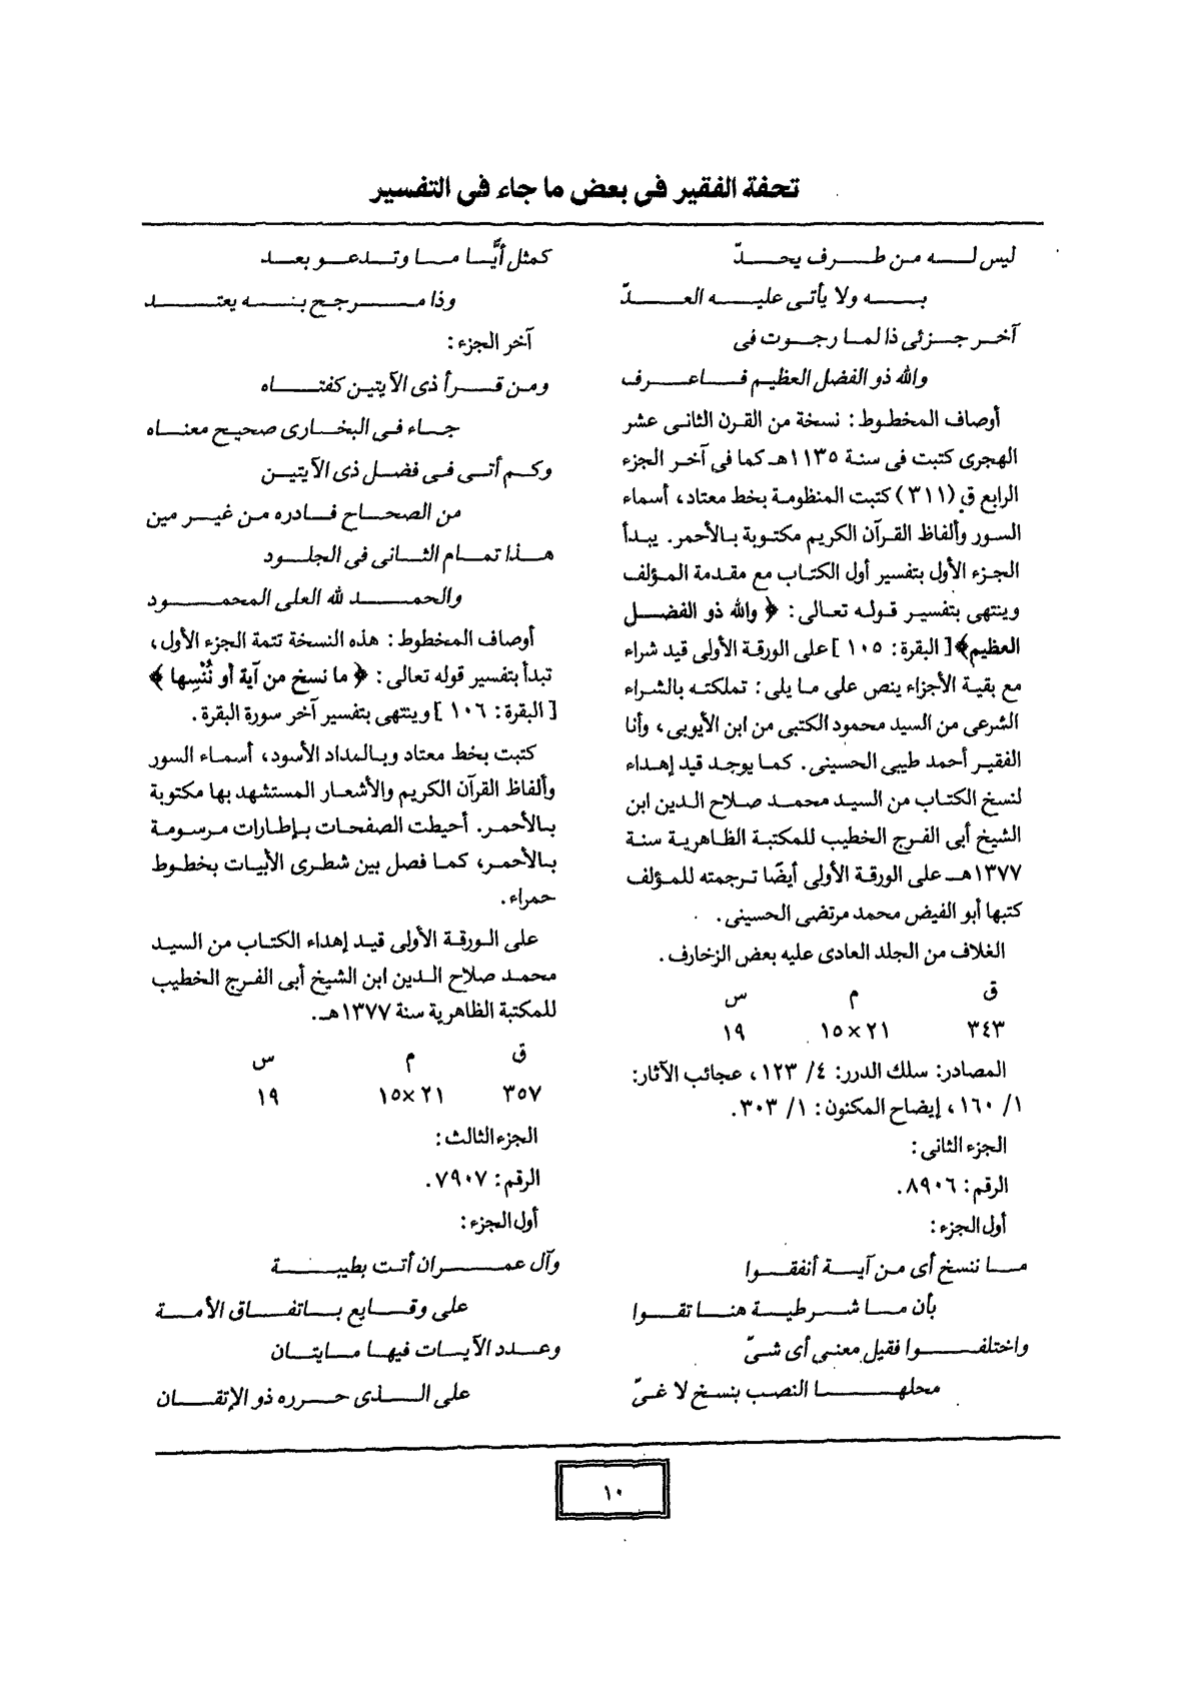 تحفة الفقير فى بعض ما جاء فى التفسير
ليس له من طرف يحدّ
به ولا يأتى عليه العدّ
آخر جزئى ذا لما رجوت فى
والله ذو الفضل العظيم فاعرف
أوصاف المخطوط: نسخة من القرن الثانى عشر
الهجرى كتبت فى سنة ١١٣٥هـ كما فى آخر الجزء
الرابع ق (٣١١) كتبت المنظومة بخط معتاد، أسماء
السور وألفاظ القرآن الكريم مكتوبة بالأحمر. يبدأ
الجزء الأول بتفسير أول الكتاب مع مقدمة المؤلف
وينتهى بتفسير قوله تعالى: ﴿ والله ذو الفضل
العظيم﴾[ البقرة: ١٠٥ ]على الورقة الأولى قيد شراء
مع بقية الأجزاء ينص على ما يلى: تملكته بالشراء
الشرعى من السيد محمود الكتبى من ابن الأيوبى، وأنا
الفقير أحمد طيبى الحسينى. كما يوجد قيد إهداء
لنسخ الكتاب من السيد محمد صلاح الدين ابن
الشيخ أبى الفرج الخطيب للمكتبة الظاهرية سنة
١٣٧٧هـ على الورقة الأولى أيضًا ترجمته للمؤلف
كتبها أبو الفيض محمد مرتضى الحسينى.
الغلاف من الجلد العادى عليه بعض الزخارف.
ق م س
٣٤٣ ٢١×١٥ ١٩
المصادر: سلك الدرر: ٤/ ١٢٣، عجائب الآثار:
١/ ١٦٠، إيضاح المكنون: ١/ ٣٠٣.
الجزء الثانى:
الرقم: ٨٩٠٦.
أول الجزء:
ما ننسخ أى من آية أنفقوا
بأن ما شرطية هنا تقوا
واختلفوا فقيل معنى أى شىّ
محلها النصب بنسخ لا غىّ
كمثل أيًّا ما وتدعو بعد
وذا مرجح بنه يعتد
آخر الجزء:
ومن قرأ ذى الآيتين كفتاه
جاء فى البخارى صحيح معناه
وكم أتى فى فضل ذى الآيتين
من الصحاح فادره من غير مين
هذا تمام الثانى فى الجلود
والحمد لله العلى المحمود
أوصاف المخطوط: هذه النسخة تتمة الجزء الأول،
تبدأ بتفسير قوله تعالى: ﴿ ما نسخ من آية أو نُنْسِها ﴾
[ البقرة: ١٠٦ ] وينتهى بتفسير آخر سورة البقرة.
كتبت بخط معتاد وبالمداد الأسود، أسماء السور
وألفاظ القرآن الكريم والأشعار المستشهد بها مكتوبة
بالأحمر. أحيطت الصفحات بإطارات مرسومة
بالأحمر، كما فصل بين شطرى الأبيات بخطوط
حمراء.
على الورقة الأولى قيد إهداء الكتاب من السيد
محمد صلاح الدين ابن الشيخ أبى الفرج الخطيب
للمكتبة الظاهرية سنة ١٣٧٧هـ.
ق م س
٣٥٧ ٢١×١٥ ١٩
الجزء الثالث:
الرقم: ٧٩٠٧.
أول الجزء:
وآل عمران أتت بطيبة
على وقايع باتفاق الأمة
وعدد الآيات فيها مايتان
على الذى حرره ذو الإتقان
١٠